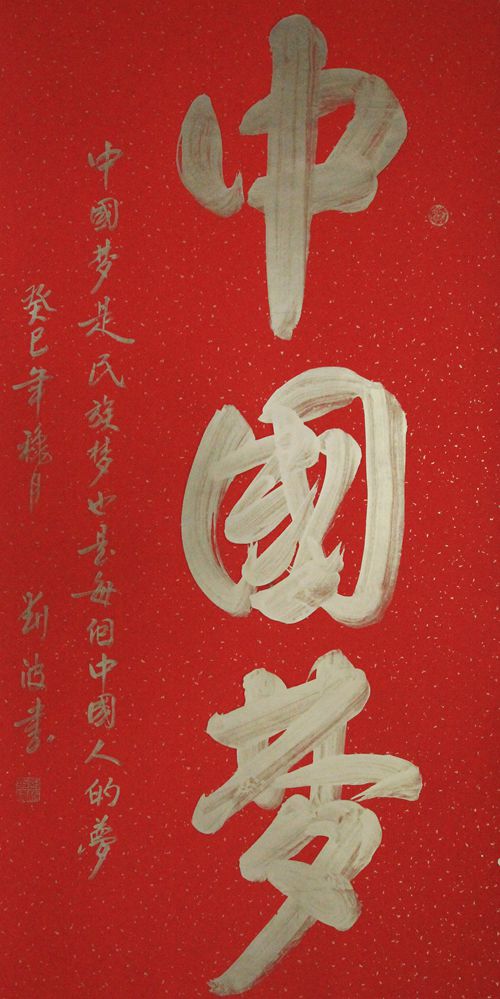 中國夢
中國梦是民族梦也是每个中國人的夢
癸巳年 月 劉波书